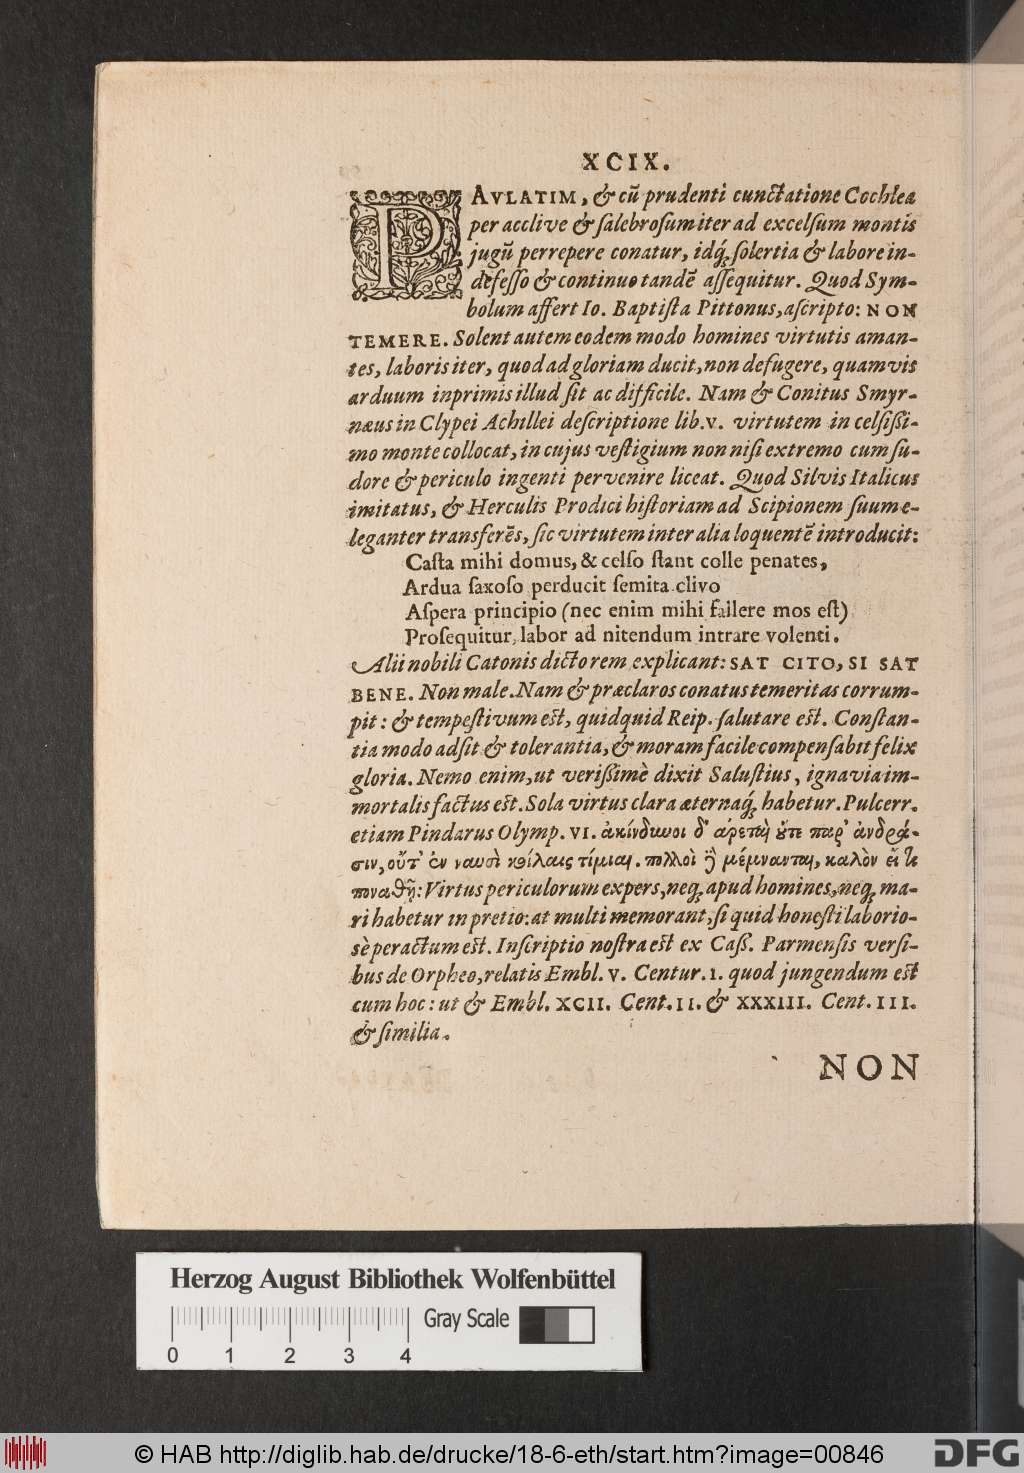 XCIX.
PAVLATIM, & cū prudenti cunctatione Cochlea
per acclive & ſalebroſum iter ad excelſum montis
jugū perrepere conatur, idq́; ſolertia & labore in-
defeſſo & continuo tandē aſſequitur. Quod Sym-
bolum affert Io. Baptiſta Pittonus, aſcripto: NON
TEMERE. Solent autem eodem modo homines virtutis aman-
tes, laboris iter, quod ad gloriam ducit, non defugere, quamvis
arduum inprimis illud ſit ac difficile. Nam & Conitus Smyr-
næus in Clypei Achillei deſcriptione lib. V. virtutem in celſiſſi-
mo monte collocat, in cujus veſtigium non niſi extremo cum ſu-
dore & periculo ingenti pervenire liceat. Quod Silvis Italicus
imitatus, & Herculis Prodici hiſtoriam ad Scipionem ſuum e-
leganter transferēs, ſic virtutem inter alia loquentē introducit:
Caſta mihi domus, & celſo ſtant colle penates,
Ardua ſaxoſo perducit ſemita clivo
Aſpera principio (nec enim mihi fallere mos eſt)
Proſequitur, labor ad nitendum intrare volenti.
Alii nobili Catonis dicto rem explicant: SAT CITO, SI SAT
BENE. Non male. Nam & præclaros conatus temeritas corrum-
pit: & tempeſtivum eſt, quidquid Reip. ſalutare eſt. Conſtan-
tia modo adſit & tolerantia, & moram facile compenſabit felix
gloria. Nemo enim, ut veriſſimè dixit Saluſtius, ignavia im-
mortalis factus eſt. Sola virtus clara æternaq́; habetur. Pulcerr.
etiam Pindarus Olymp. VI. ἀκίνδυνοι δ' ἀρεταὶ ὔτε παρ' ἀνδρά-
σιν, οὔτ' ἐν ναυσὶ κοίλαις τίμιαι. πολλοὶ δὲ μέμνανται, καλὸν εἴ τι
ποναθῇ: Virtus periculorum expers, neq; apud homines, neq; ma-
ri habetur in pretio: at multi memorant, ſi quid honeſti laborio-
sè peractum eſt. Inſcriptio noſtra eſt ex Caſſ. Parmenſis verſi-
bus de Orpheo, relatis Embl. V. Centur. I. quod jungendum eſt
cum hoc: ut & Embl. XCII. Cent. II. & XXXIII. Cent. III.
& ſimilia.
NON
Herzog August Bibliothek Wolfenbüttel
Gray Scale
0 1 2 3 4
© HAB http://diglib.hab.de/drucke/18-6-eth/start.htm?image=00846
DFG